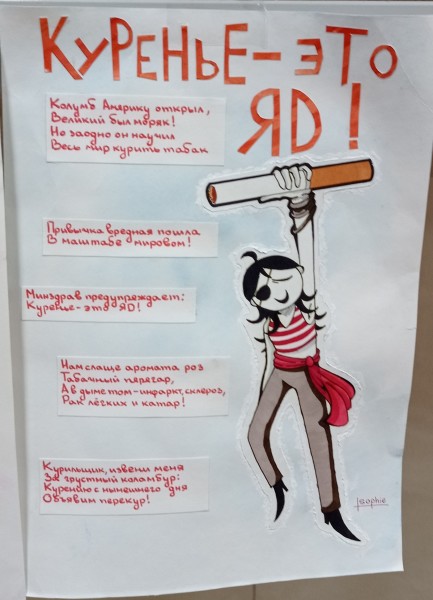 КУРЕНЬЕ-ЭТО
ЯД!
Колумб Америку открыл,
Великий был моряк!
Но заодно он научил
Весь мир курить табак
Привычка вредная пошла
В маштабе мировом!
Минздрав предупреждает:
Куренье-это ЯД!
Нам слаще аромата роз
Табачный перягар,
А в дыме том-инфаркт, склероз,
Рак лёгких и катар!
Курильщик, извени меня
За грустный каламбур:
Курению с нынешнего дня
Объявим перекур!